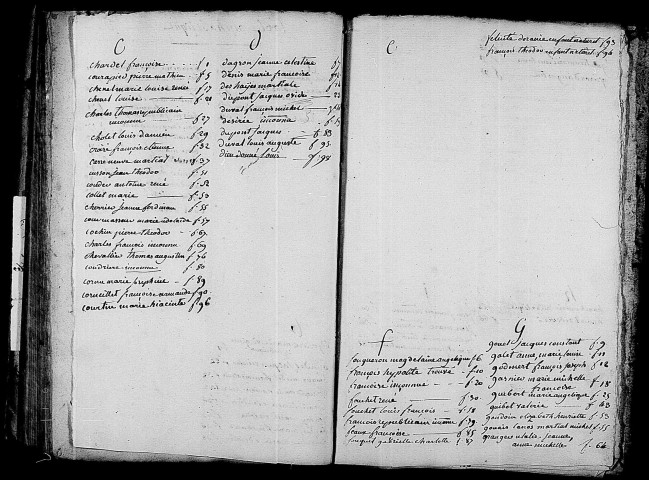 C
chardel françoise f. 1
couragied pierre mathieu f. 5
chenel marie louise renée f. 17
chenel louise f. 21
charles thomas republicain
inconnu f. 27
cholet louis damien f. 29
crozé françois etienne f. 32
casse neuve martial f. 37
cusson jean theodor f. 51
couder antoine rené f. 52
collet marie f. 53
cherrier jeanne ferdinan f. 55
courmasson marie adelaide f. 57
cochin pierre theodor f. 67
charles françois inconnu f. 69
chevallier thomas augustin f. 76
coudriere inconnue f. 80
cornu marie f. 89
corneillet françoise normande f. 90
courtin marie hiacinte f. 96
D
dagron jeanne celestine f. 7
denis marie françoise
des hayes martiale
dupont jacques
duval françois michel
desirée inconnu
dupont jacques f. 83
duval louis auguste f. 95
dieu donné louis f. 98
E
felicité enfant naturel f. 93
françois theodor enfant naturel f. 96
f
fouqueron magdelaine angelique f. 6
françois hypolite trouvé f. 10
françoise inconnue f. 20
fouchet rené f. 30
fouchet louis françois f. 18
françois republicain inconu f. 79
feaux françoise f. 85
fouquet gabrielle charlotte f. 87
G
gouet jacques constant f. 9
galet anne marie louise f. 11
godmert françois joseph f. 12
garnier marie michelle
françoise f. 18
guibort marie angelique f. 25
guibot valerie f. 43
gaudoin elizabeth henriette f. 53
gouais lanos martial michel f. 55
granger jeanne
anne michelle f. 66